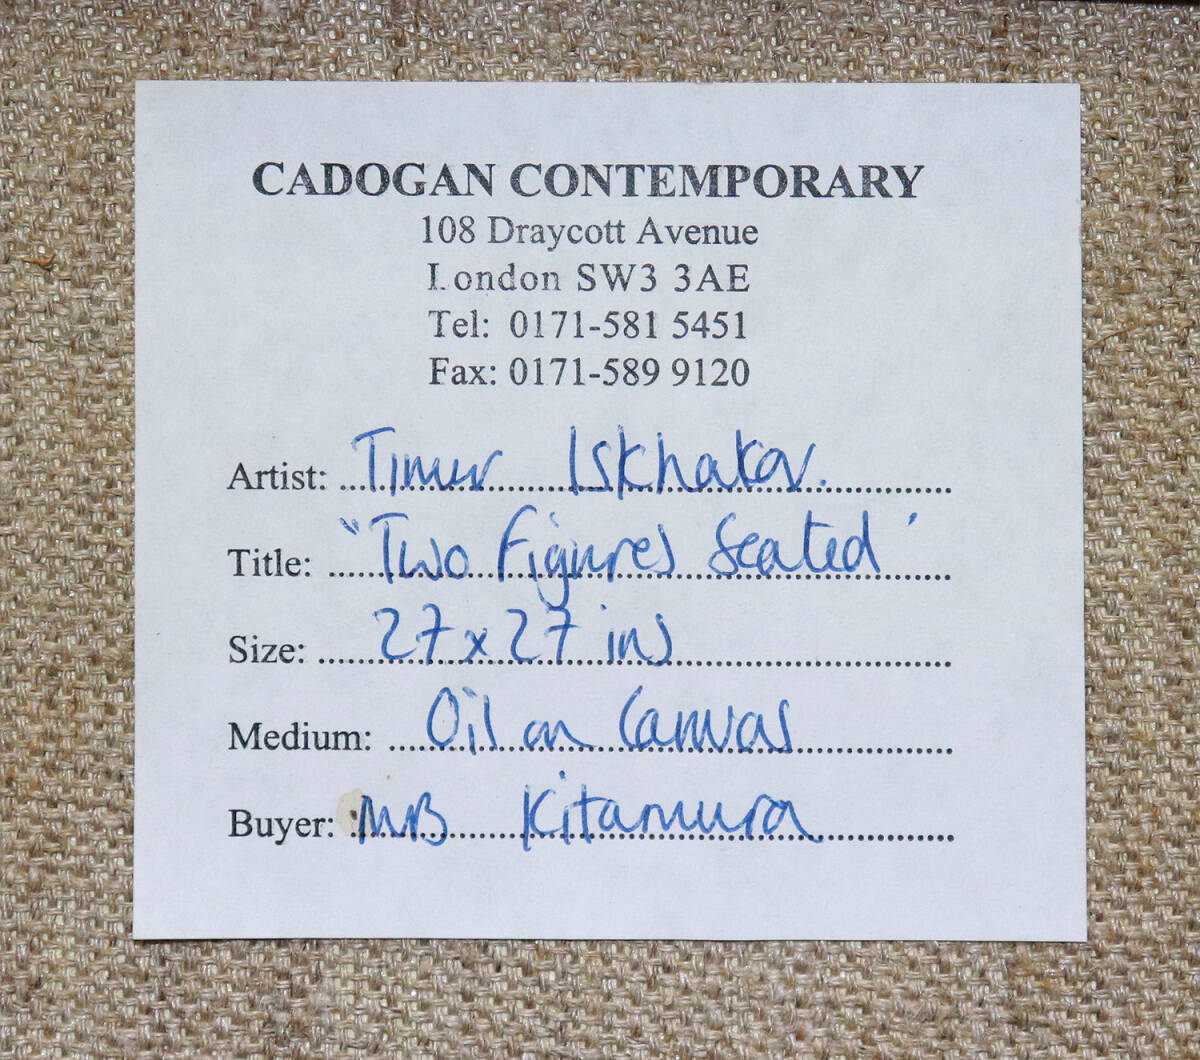 CADOGAN CONTEMPORARY
108 Draycott Avenue
London SW3 3AE
Tel: 0171-581 5451
Fax: 0171-589 9120
Artist: Timur Iskhakov.
Title: "Two Figures Seated'
Size: 27 x 27 ins
Medium: Oil on Canvas
Buyer: Kitamura